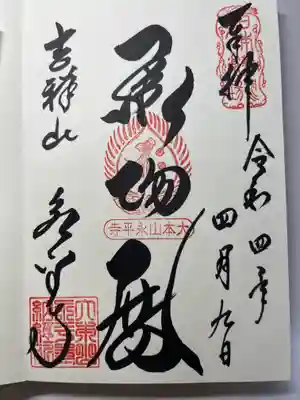 奉拝
令和四年
四月九日
承陽殿
大本山永平寺
吉祥山
永平寺